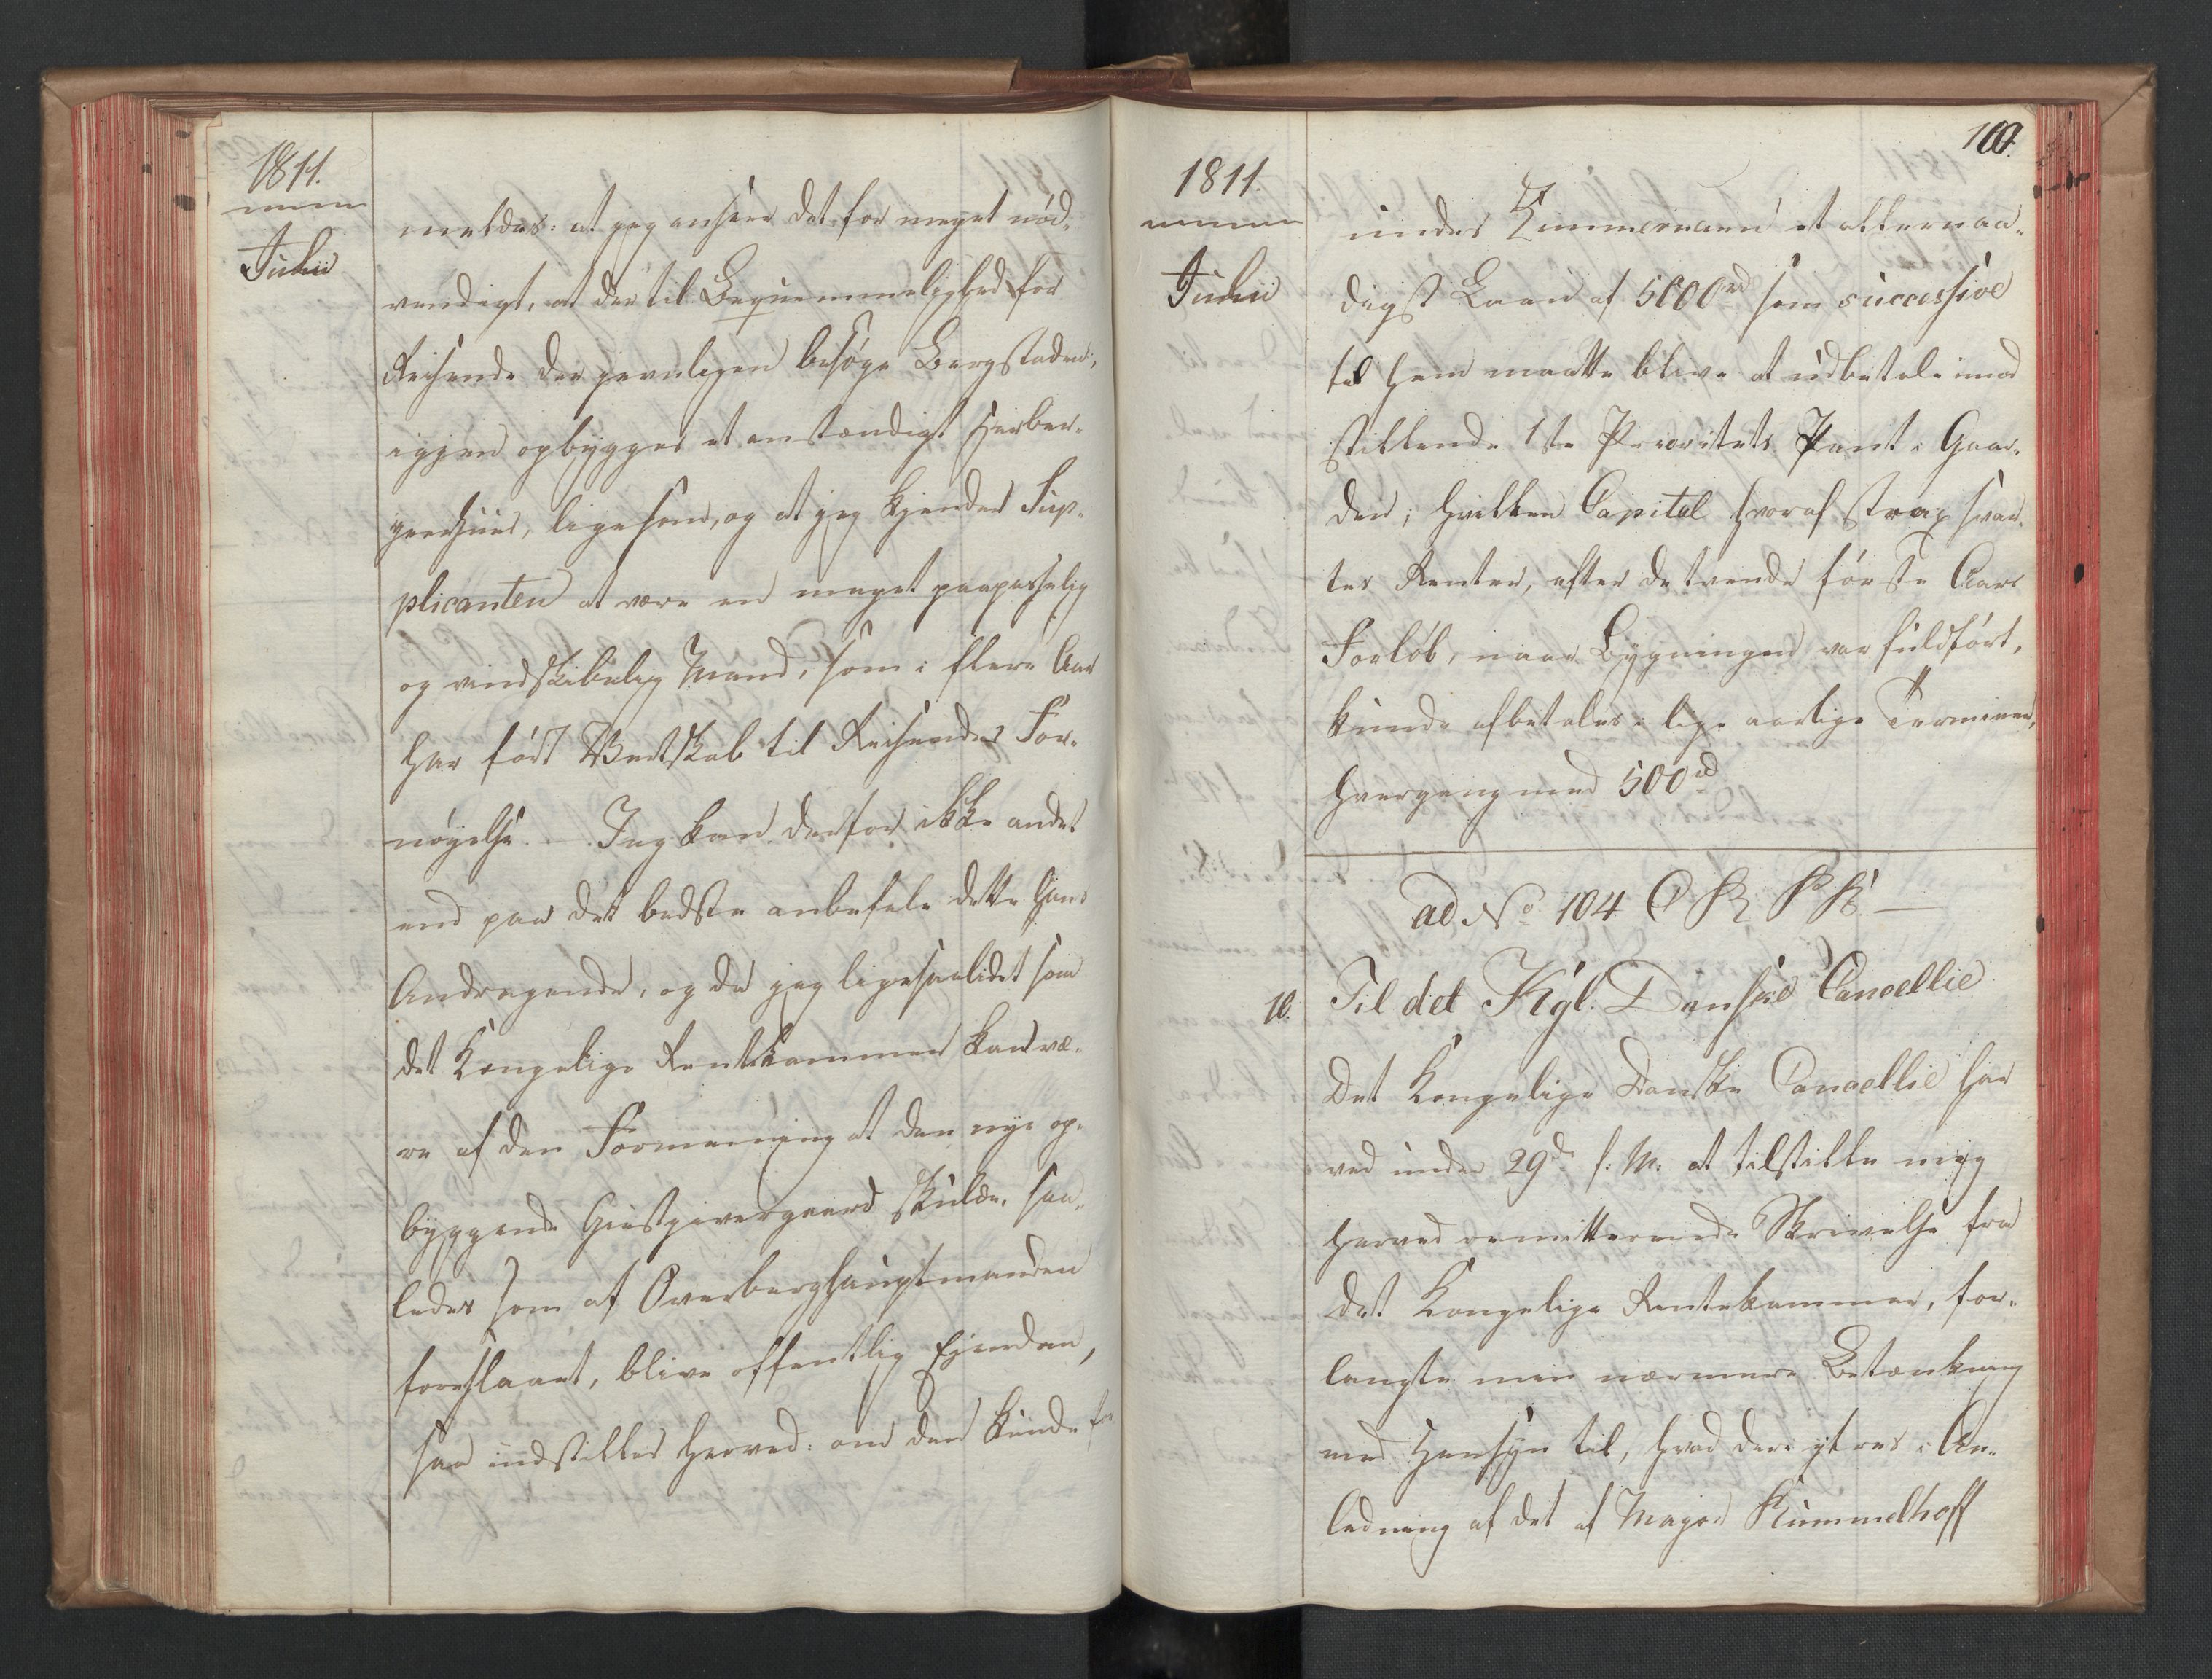 1811.
Julii
meldes: at jeg anseer det for meget nöd-
vendigt, at der til Beqvemmelighed for
Reisende der jevnligen besöge Bergstaden,
igjen opbygges et anstændigt Herber-
geerhuus, ligesom, og at jeg kjender Sup-
plicanten at være en meget paapasselig
og vindskibelig Mand, som i flere Aar
har fört Vertskab til Reisendes For-
nöyelse. Jeg kan derfor ikke andet
end paa det bedste anbefale dette hans
Andragende, og da jeg ligesaalidet som
det Kongelige Rentekammer kan væ-
re af den Formening at den nye op-
byggende Giestgivergaard skulde, saa-
ledes som af Overberghauptmanden
foreslaaet, blive offentlig Ejendom,
saa indstilles herved: om den kunde for-
100.
1811.
Julii
undes Zimmermann et allernaa-
digst Laan af 5000 rd som successive
til ham maatte blive at udbetale imod
stillende 1ste Prioritets Pant i Gaar-
den; hvilken Capital hvoraf strax svar-
tes Renter, efter de trende förste Aars
Forlöb, naar Bygningen var fuldfört,
kunde afbetales i lige aarlige Terminer,
hvergang med 500 rd
ad No 104
10.
Til det Kgl. Danske Cancellie
Det Kongelige Danske Cancellie har
ved under 29de f: M: at tilstille mig
herved remitterende Skrivelse fra
det Kongelige Rentekammer, for-
langte min nærmere Betænkning
med Hensyn til, hvad deri ytres i An-
ledning af det af Major Kummelhoff